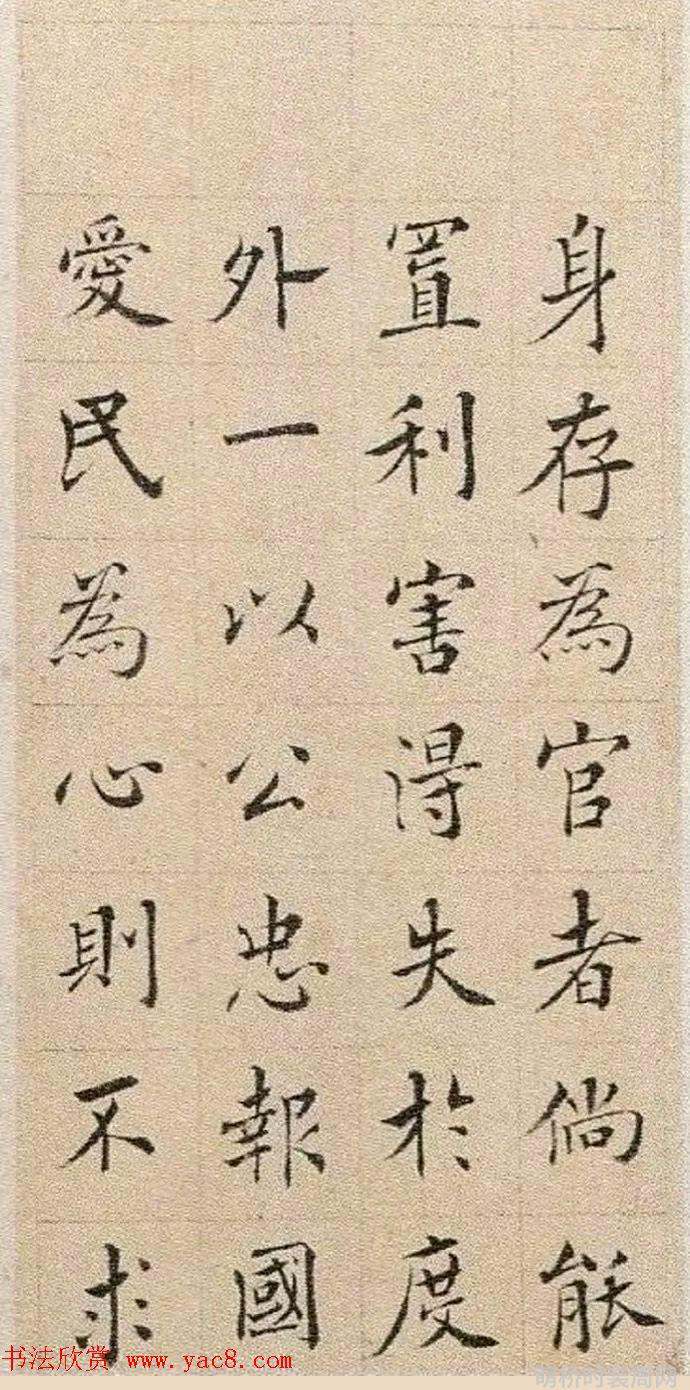 身存為官者倘能
置利害得失於度
外一以公忠報國
愛民為心則不求
书法欣赏 www.yac8.com